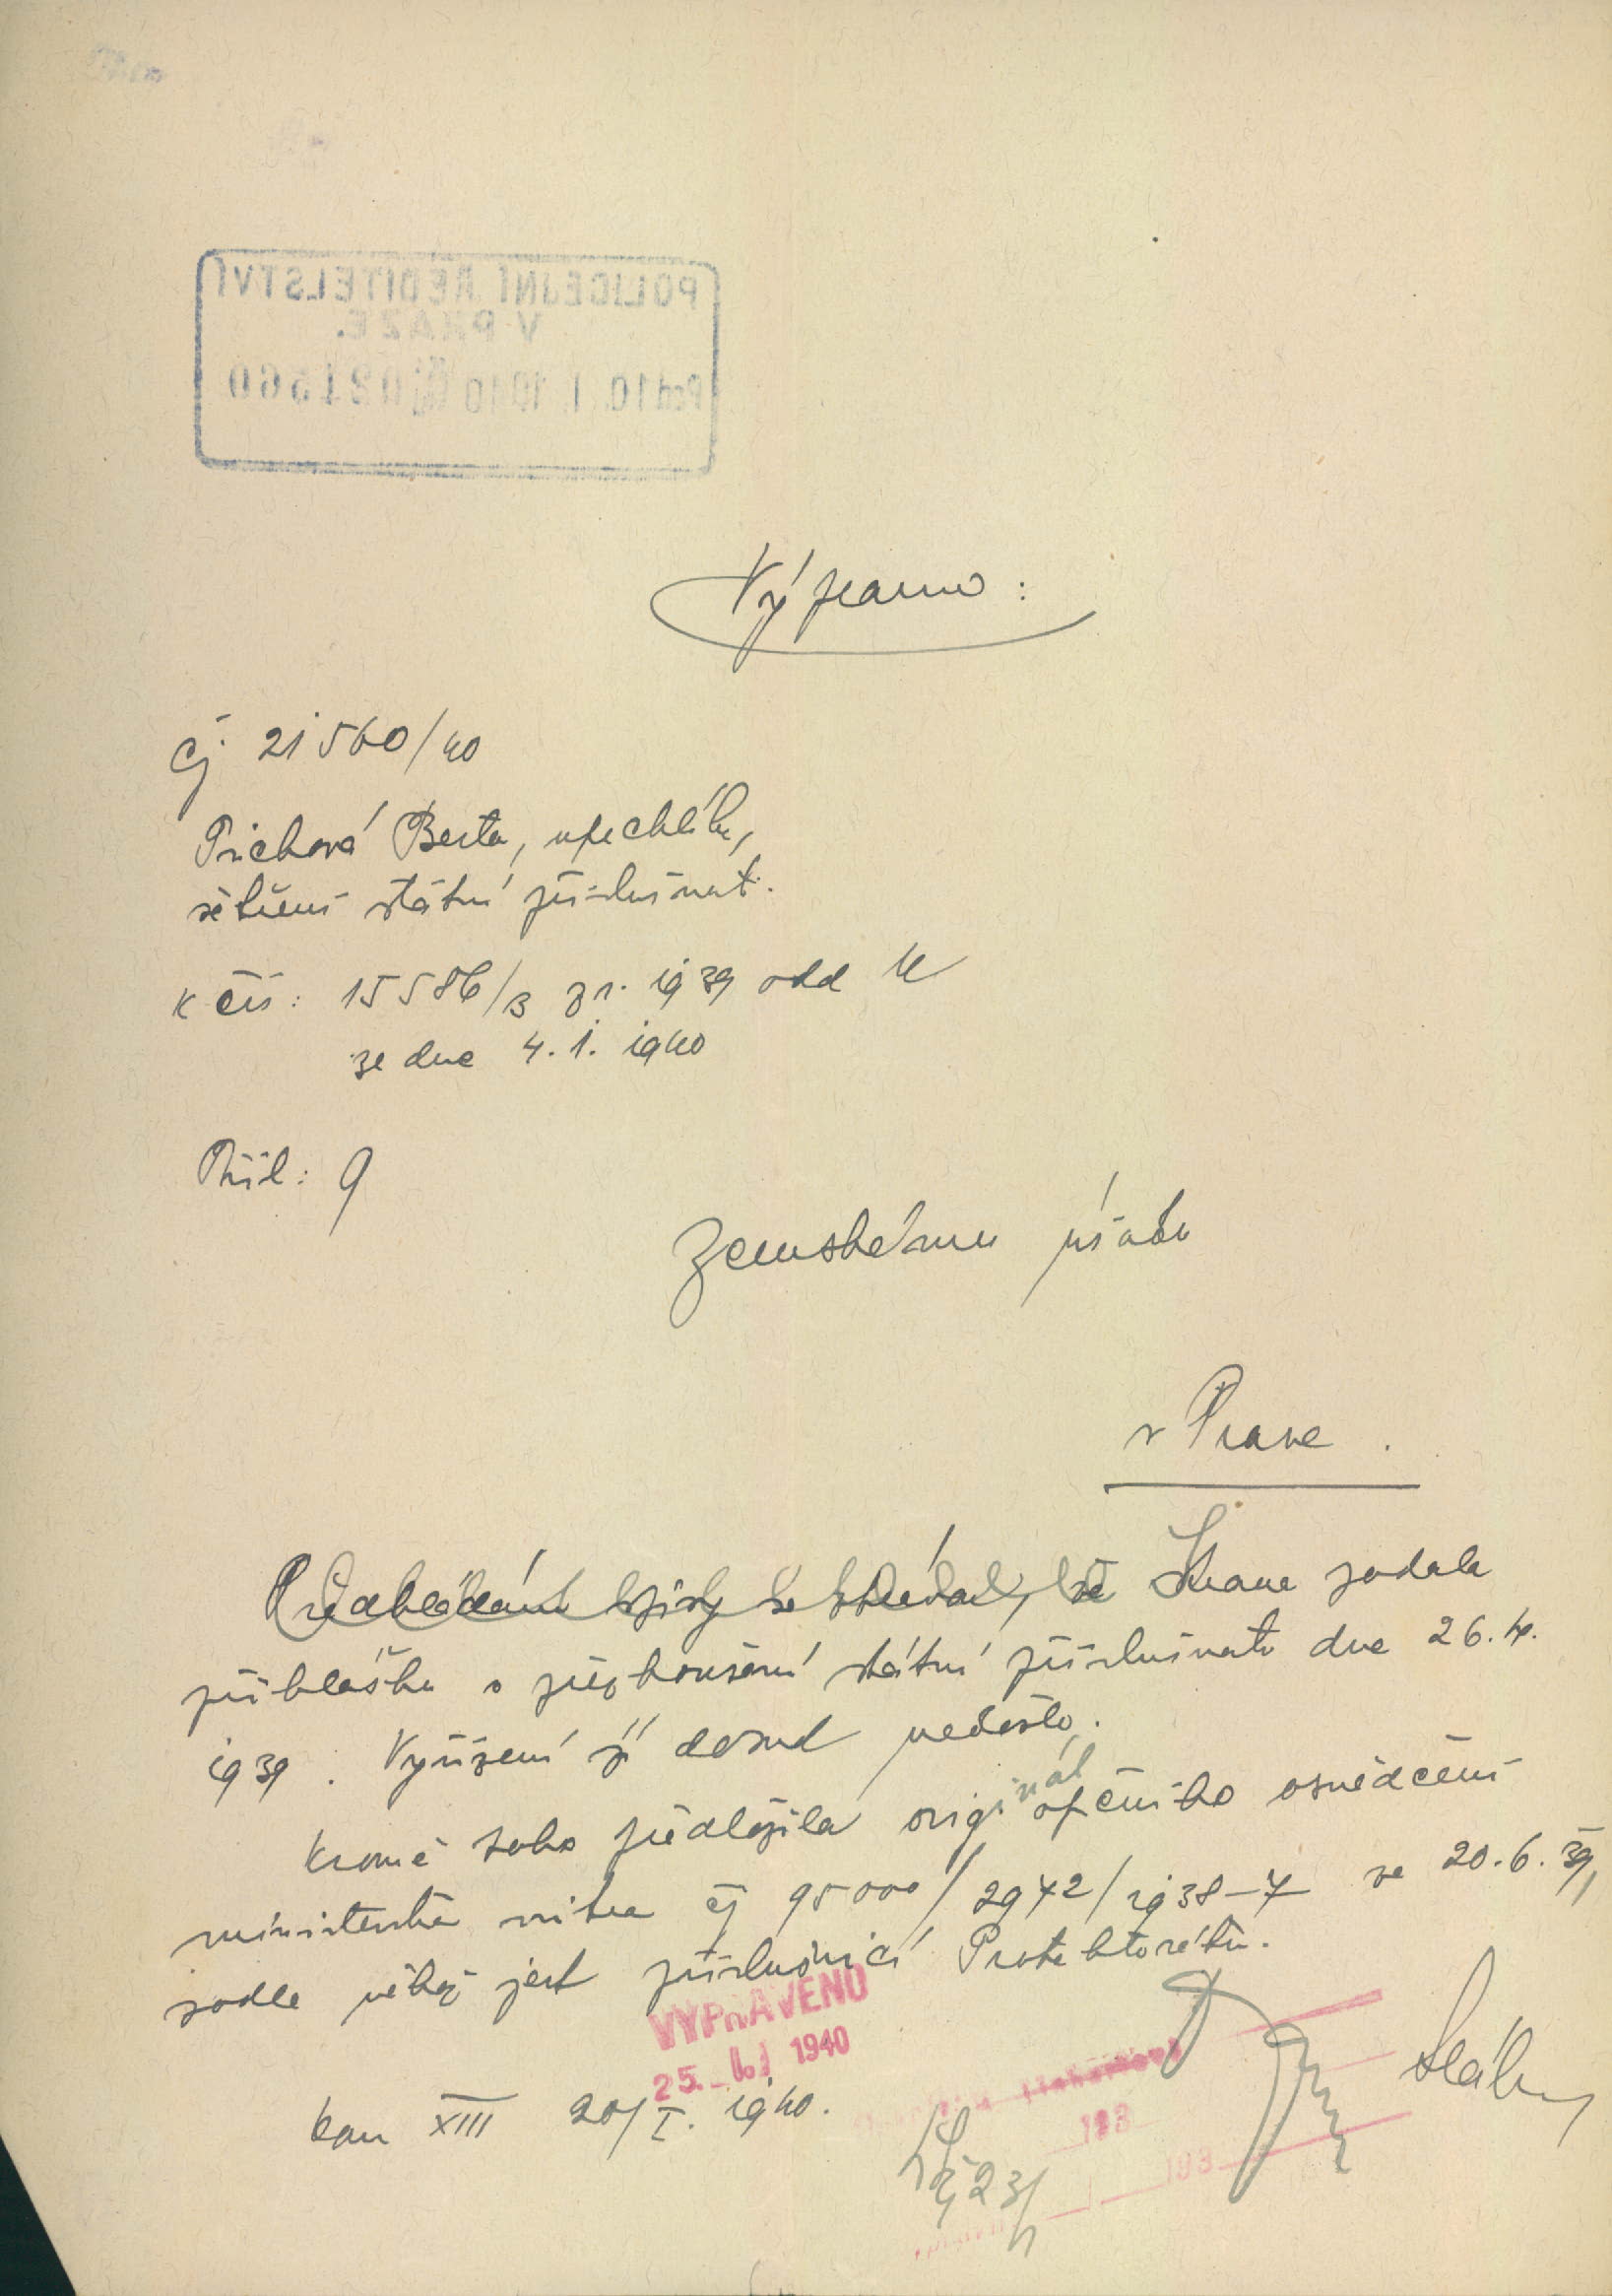 POLICEJNÍ ŘEDITELSTVÍ
V PRAZE.
10. I. 1940 021560
Výpravno:
Čj 21560/40
Prichová Berta,
státní příslušnost.
K čís: 15586/B z r. 1939 odd
ze dne 4. 1. 1940
Příl: 9
Zemskému úřadu
v Praze.
že Strana podala
přihlášku o přezkoušení státní příslušnosti dne 26. 4.
1939. Vyřízení jí dosud nedošlo.
Kromě toho předložila originál opčního osvědčení
ministerstva vnitra čj 95000/2942/1938-7 ze 20. 6. 39,
podle něhož jest příslušnicí Protektorátu.
VYPRAVENO
25. 1940
kan XIII 20/I. 1940.
193
193
23/1